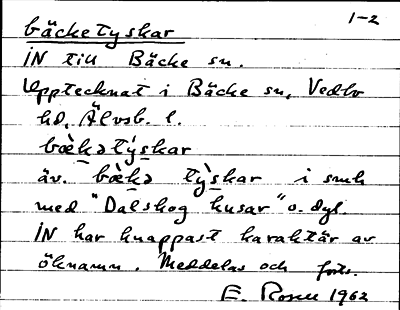 1-2
bäcketyskar
IN till Bäcke sn.
Upptecknat i Bäcke sn, Vedbo
hd, Älvsb. l.
bæ̀kətýskar
äv. bæ̀kə tỳskar i smh
med "Dalskog husar" o. dyl.
IN har knappast karaktär av
öknamn. Meddelas och förts.
E. Rosell 1962